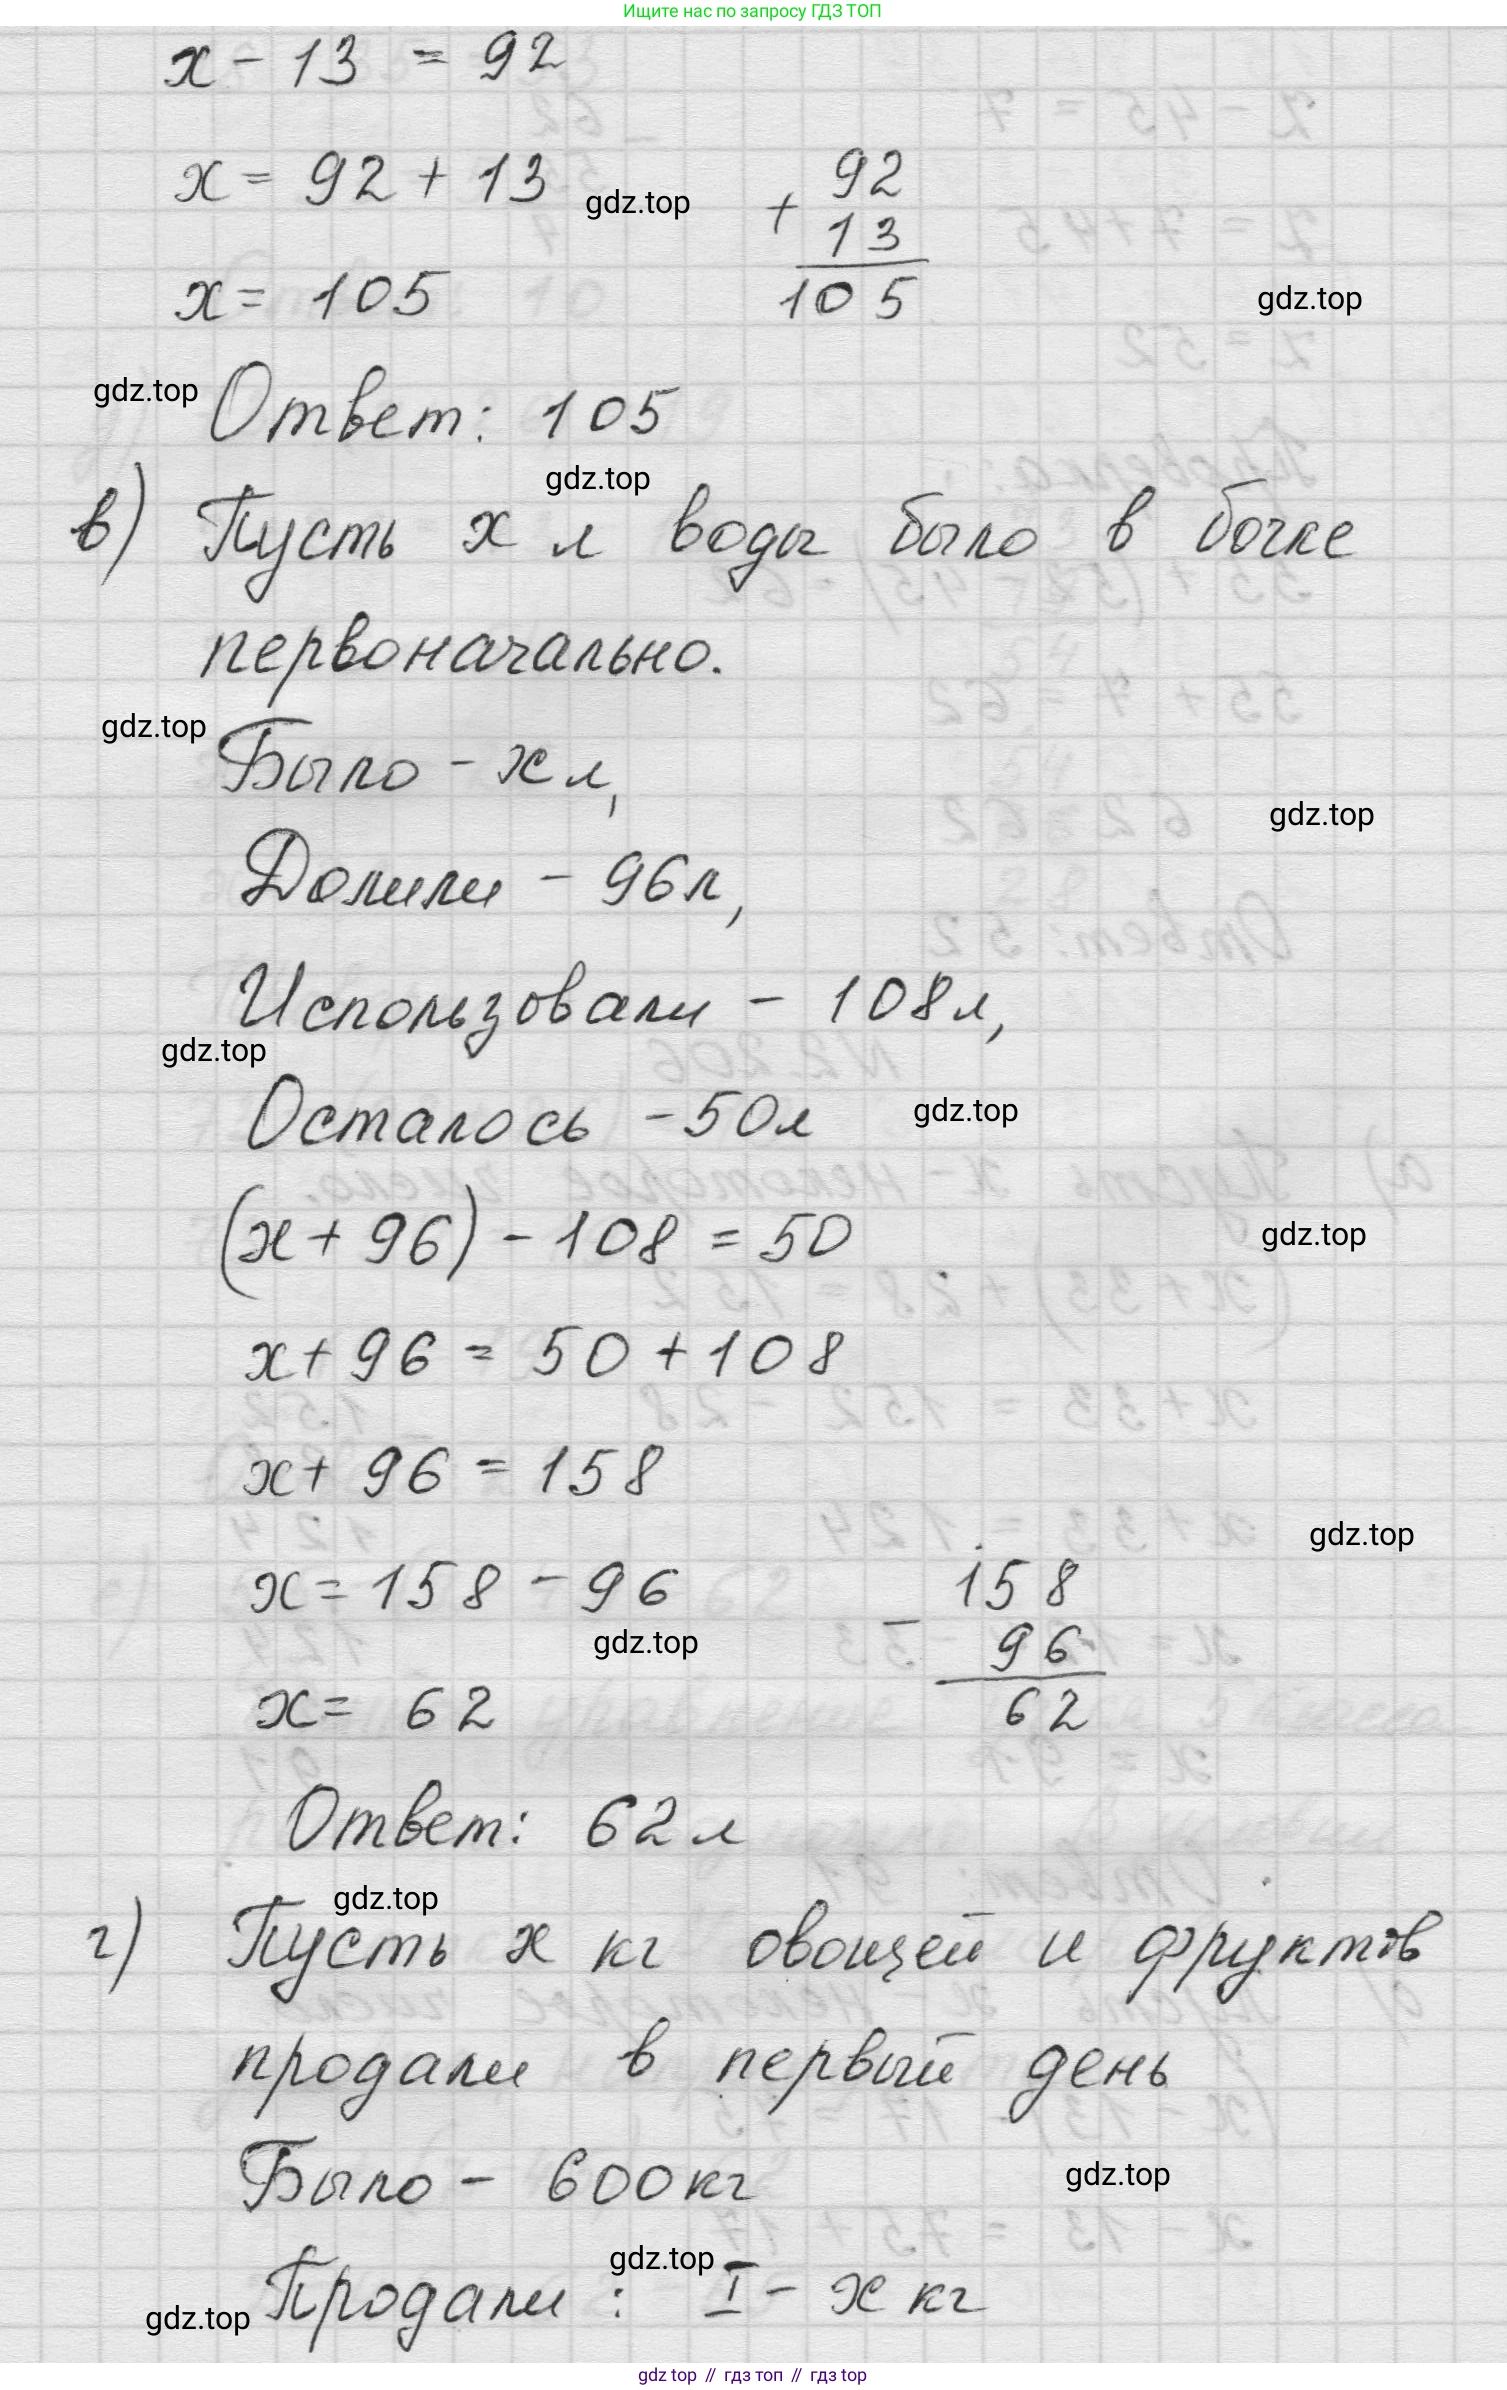 Ищите нас по запросу ГДЗ ТОП
x - 13 = 92
x = 92 + 13
gdz.top
+ 92
13
105
x = 105
gdz.top
gdz.top
Ответ: 105
gdz.top
в) Пусть x л воды было в бочке
первоначально.
gdz.top
Было - x л,
gdz.top
Долили - 96 л,
Использовали - 108 л,
gdz.top
Осталось - 50 л
gdz.top
(x + 96) - 108 = 50
gdz.top
x + 96 = 50 + 108
x + 96 = 158
gdz.top
x = 158 - 96
- 158
96
62
gdz.top
x = 62
Ответ: 62 л
gdz.top
г) Пусть x кг овощей и фруктов
продали в первый день
Было - 600 кг
gdz.top
gdz.top
Продали : I - x кг
gdz.top
gdz top // гдз топ // гдз top